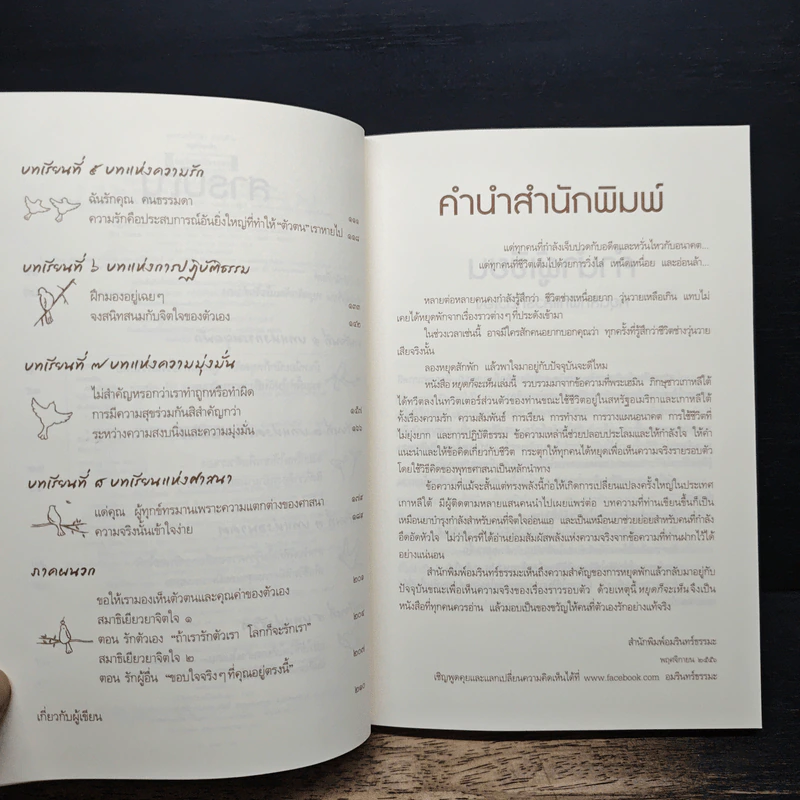 บทเรียนที่ ๕ บทแห่งความรัก
ฉันรักคุณ คนธรรมดา ๑๑๑
ความรักคือประสบการณ์อันยิ่งใหญ่ที่ทำให้ "ตัวตน" เราหายไป ๑๑๘
บทเรียนที่ ๖ บทแห่งการปฏิบัติธรรม
ฝึกมองอยู่เฉยๆ ๑๓๓
จงสนิทสนมกับจิตใจของตัวเอง ๑๔๒
บทเรียนที่ ๗ บทแห่งความมุ่งมั่น
ไม่สำคัญหรอกว่าเราทำถูกหรือทำผิด
การมีความสุขร่วมกันสิสำคัญกว่า ๑๕๓
ระหว่างความสงบนิ่งและความมุ่งมั่น ๑๖๖
บทเรียนที่ ๘ บทเรียนแห่งศาสนา
แด่คุณ ผู้ทุกข์ทรมานเพราะความแตกต่างของศาสนา ๑๗๙
ความจริงนั้นเข้าใจง่าย ๑๘๙
ภาคผนวก
ขอให้เรามองเห็นตัวตนและคุณค่าของตัวเอง ๒๐๑
สมาธิเยียวยาจิตใจ ๑
ตอน รักตัวเอง "ถ้าเรารักตัวเรา โลกก็จะรักเรา" ๒๐๔
สมาธิเยียวยาจิตใจ ๒
ตอน รักผู้อื่น "ขอบใจจริงๆ ที่คุณอยู่ตรงนี้" ๒๐๗
เกี่ยวกับผู้เขียน ๒๑๐
คำนำสำนักพิมพ์
แด่ทุกคนที่กำลังเจ็บปวดกับอดีตและหวั่นไหวกับอนาคต...
แด่ทุกคนที่ชีวิตเต็มไปด้วยการวิ่งไล่ เหน็ดเหนื่อย และอ่อนล้า...
หลายต่อหลายคนคงกำลังรู้สึกว่า ชีวิตช่างเหนื่อยยาก วุ่นวายเหลือเกิน แทบไม่
เคยได้หยุดพักจากเรื่องราวต่างๆ ที่ประดังเข้ามา
ในช่วงเวลาเช่นนี้ อาจมีใครสักคนอยากบอกคุณว่า ทุกครั้งที่รู้สึกว่าชีวิตช่างวุ่นวาย
เสียจริงนั้น
ลองหยุดสักพัก แล้วพาใจมาอยู่กับปัจจุบันจะดีไหม
หนังสือ หยุดก็จะเห็น เล่มนี้ รวบรวมมาจากข้อความที่พระเฮมิน ภิกษุชาวเกาหลีใต้
ได้ทวีตลงในทวิตเตอร์ส่วนตัวของท่านขณะใช้ชีวิตอยู่ในสหรัฐอเมริกาและเกาหลีใต้
ทั้งเรื่องความรัก ความสัมพันธ์ การเรียน การทำงาน การวางแผนอนาคต การใช้ชีวิตที่
ไม่ยุ่งยาก และการปฏิบัติธรรม ข้อความเหล่านี้ช่วยปลอบประโลมและให้กำลังใจ ให้คำ
แนะนำและให้ข้อคิดเกี่ยวกับชีวิต กระตุกให้ทุกคนได้หยุดเพื่อเห็นความจริงรายรอบตัว
โดยใช้วิธีคิดของพุทธศาสนาเป็นหลักนำทาง
ข้อความที่แม้จะสั้นแต่ทรงพลังนี้ก่อให้เกิดการเปลี่ยนแปลงครั้งใหญ่ในประเทศ
เกาหลีใต้ มีผู้ติดตามหลายแสนคนนำไปเผยแพร่ต่อ บทความที่ท่านเขียนขึ้นก็เป็น
เหมือนยาบำรุงกำลังสำหรับคนที่จิตใจอ่อนแอ และเป็นเหมือนยาช่วยย่อยสำหรับคนที่กำลัง
อึดอัดหัวใจ ไม่ว่าใครที่ได้อ่านย่อมสัมผัสพลังแห่งความจริงจากข้อความที่ท่านฝากไว้ได้
อย่างแน่นอน
สำนักพิมพ์อมรินทร์ธรรมะเห็นถึงความสำคัญของการหยุดพักแล้วกลับมาอยู่กับ
ปัจจุบันขณะเพื่อเห็นความจริงของเรื่องราวรอบตัว ด้วยเหตุนี้ หยุดก็จะเห็น จึงเป็น
หนังสือที่ทุกคนควรอ่าน แล้วมอบเป็นของขวัญให้คนที่ตัวเองรักอย่างแท้จริง
สำนักพิมพ์อมรินทร์ธรรมะ
พฤศจิกายน ๒๕๕๖
เชิญพูดคุยและแลกเปลี่ยนความคิดเห็นได้ที่ www.facebook.com อมรินทร์ธรรมะ